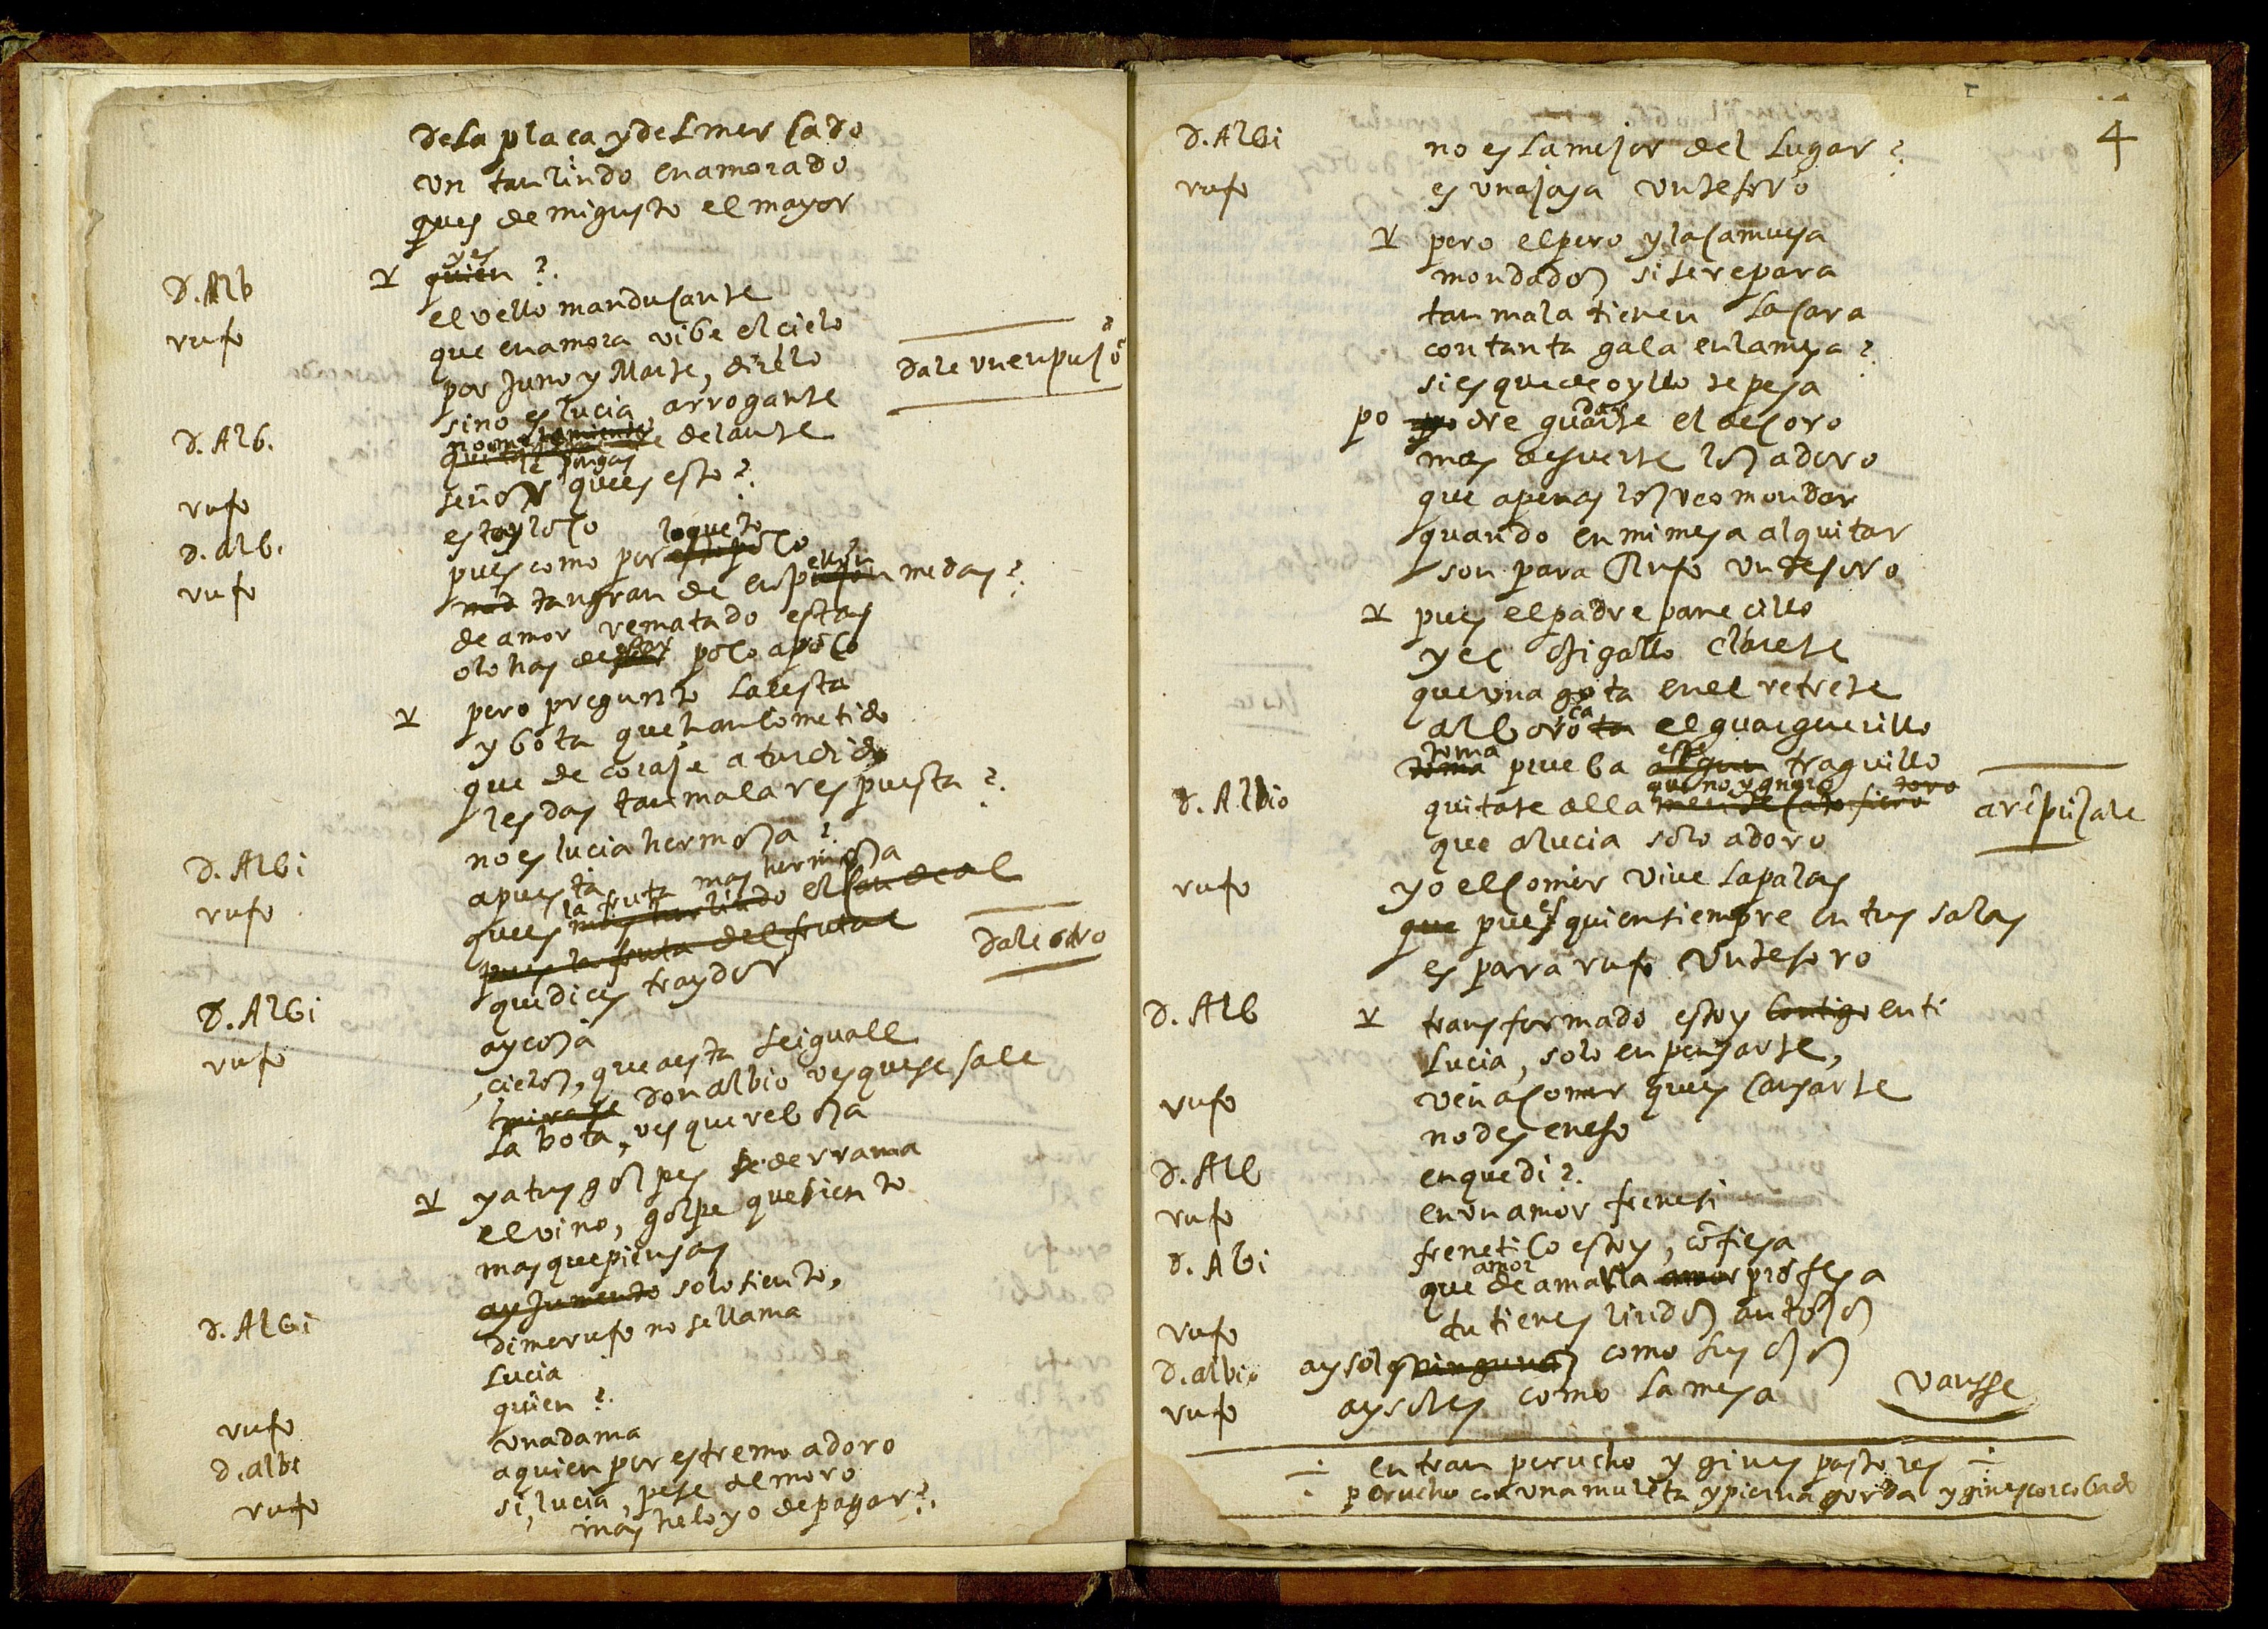 de la plaça y del mercado
un tan lindo enamorado
ques de mi gusto el mayor
D. Alb quien yes ?
rufo el vello manducante
que enamora vibe el cielo
por Juno y Marte, dirélo
sino es lucia, arrogante
dale un enpujõ
D. Alb. no me te pongas delante
rufo señor ques esto ?
d. alb. estoy loco
rufo pues como por loqueto
tan gran de enpujon me das ?
de amor rematado estas
o lo has de poco a poco
pero pregunto la cesta
y bota que han cometido
que de coraje aturdido
les das tan mala respuesta ?
D. Albi no es lucia hermosa ?
rufo apuesta
ques la fruta mas hermosa
mas tan lindo el candeal
pues la fruta del frutal
D. Albi que dices traydor
dale otro
rufo ay cosa
cielos, que a esta se iguale
mirase don albio ves que se sale
la bota, ves que rebosa
y a tus golpes se derrama
el vino, golpe que siento
mas que piensas
D. Albi ay Jumento solo siento,
dime rufo no se llama
Lucia
rufo quien ?
d. albi una dama
a quien por estremo adoro
rufo si, lucia, pese al moro
mas helo yo de pagar ?
4
D. Albi no es la mejor del lugar ?
rufo es una joya un tesoro
pero el pero y la camuesa
mondados si se repara
tan mala tienen la cara
con tanta gala en la mesa ?
si es que de oyllo te pesa
po podre guardarte el decoro
mas de suerte los adoro
que apenas los veo mondar
quando en mi mesa al quitar
son para Rufo un tesoro
pues el padre panecillo
y el Cigallo clarete
que una gota en el retrete
alborota ca el guarguerillo
toma toma prueba algun este traguillo
D. Albio quitate alla que no y anoro toro
arẽpujale
que a lucia solo adoro
rufo yo el comer vive la palas
que pues quien siempre en tus salas
es para rufo un tesoro
D. Alb transformado estoy contigo en ti
Lucia, solo en pensarte,
rufo ven a comer ques cansarte
no des en eso
D. Alb en que di ?
rufo en un amor frenesi
D. Albi frenetico estoy, cõfiesa
que amor de amarla amor profesa
rufo tu tienes lindos antojos
d. albio ay soles ningunos como sus ojos
rufo ay soles como la mesa
vansse
entran perucho y gines pastores
perucho con una muleta y pierna gorda y gines corcobado